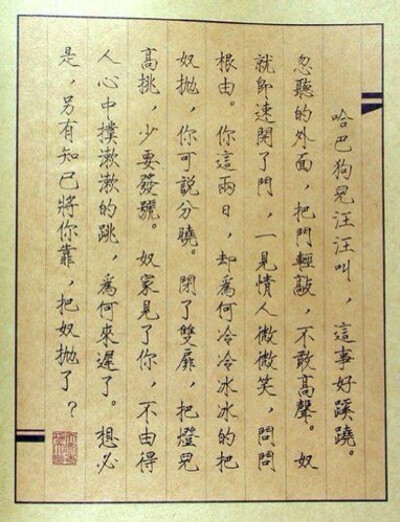 哈巴狗兒汪汪叫，這事好蹊蹺。
忽聽的外面，把門輕敲，不敢高聲。奴
就師速閉了門，一見情人微微笑，問問
根由。你這兩日，却爲何冷冷冰冰的把
奴抛，你可說分曉。閉了雙扉，把燈兒
高挑，少要發號。奴家見了你，不由得
人心中撲漱漱的跳，爲何來遲了。想必
是，另有知已將你靠，把奴抛了？